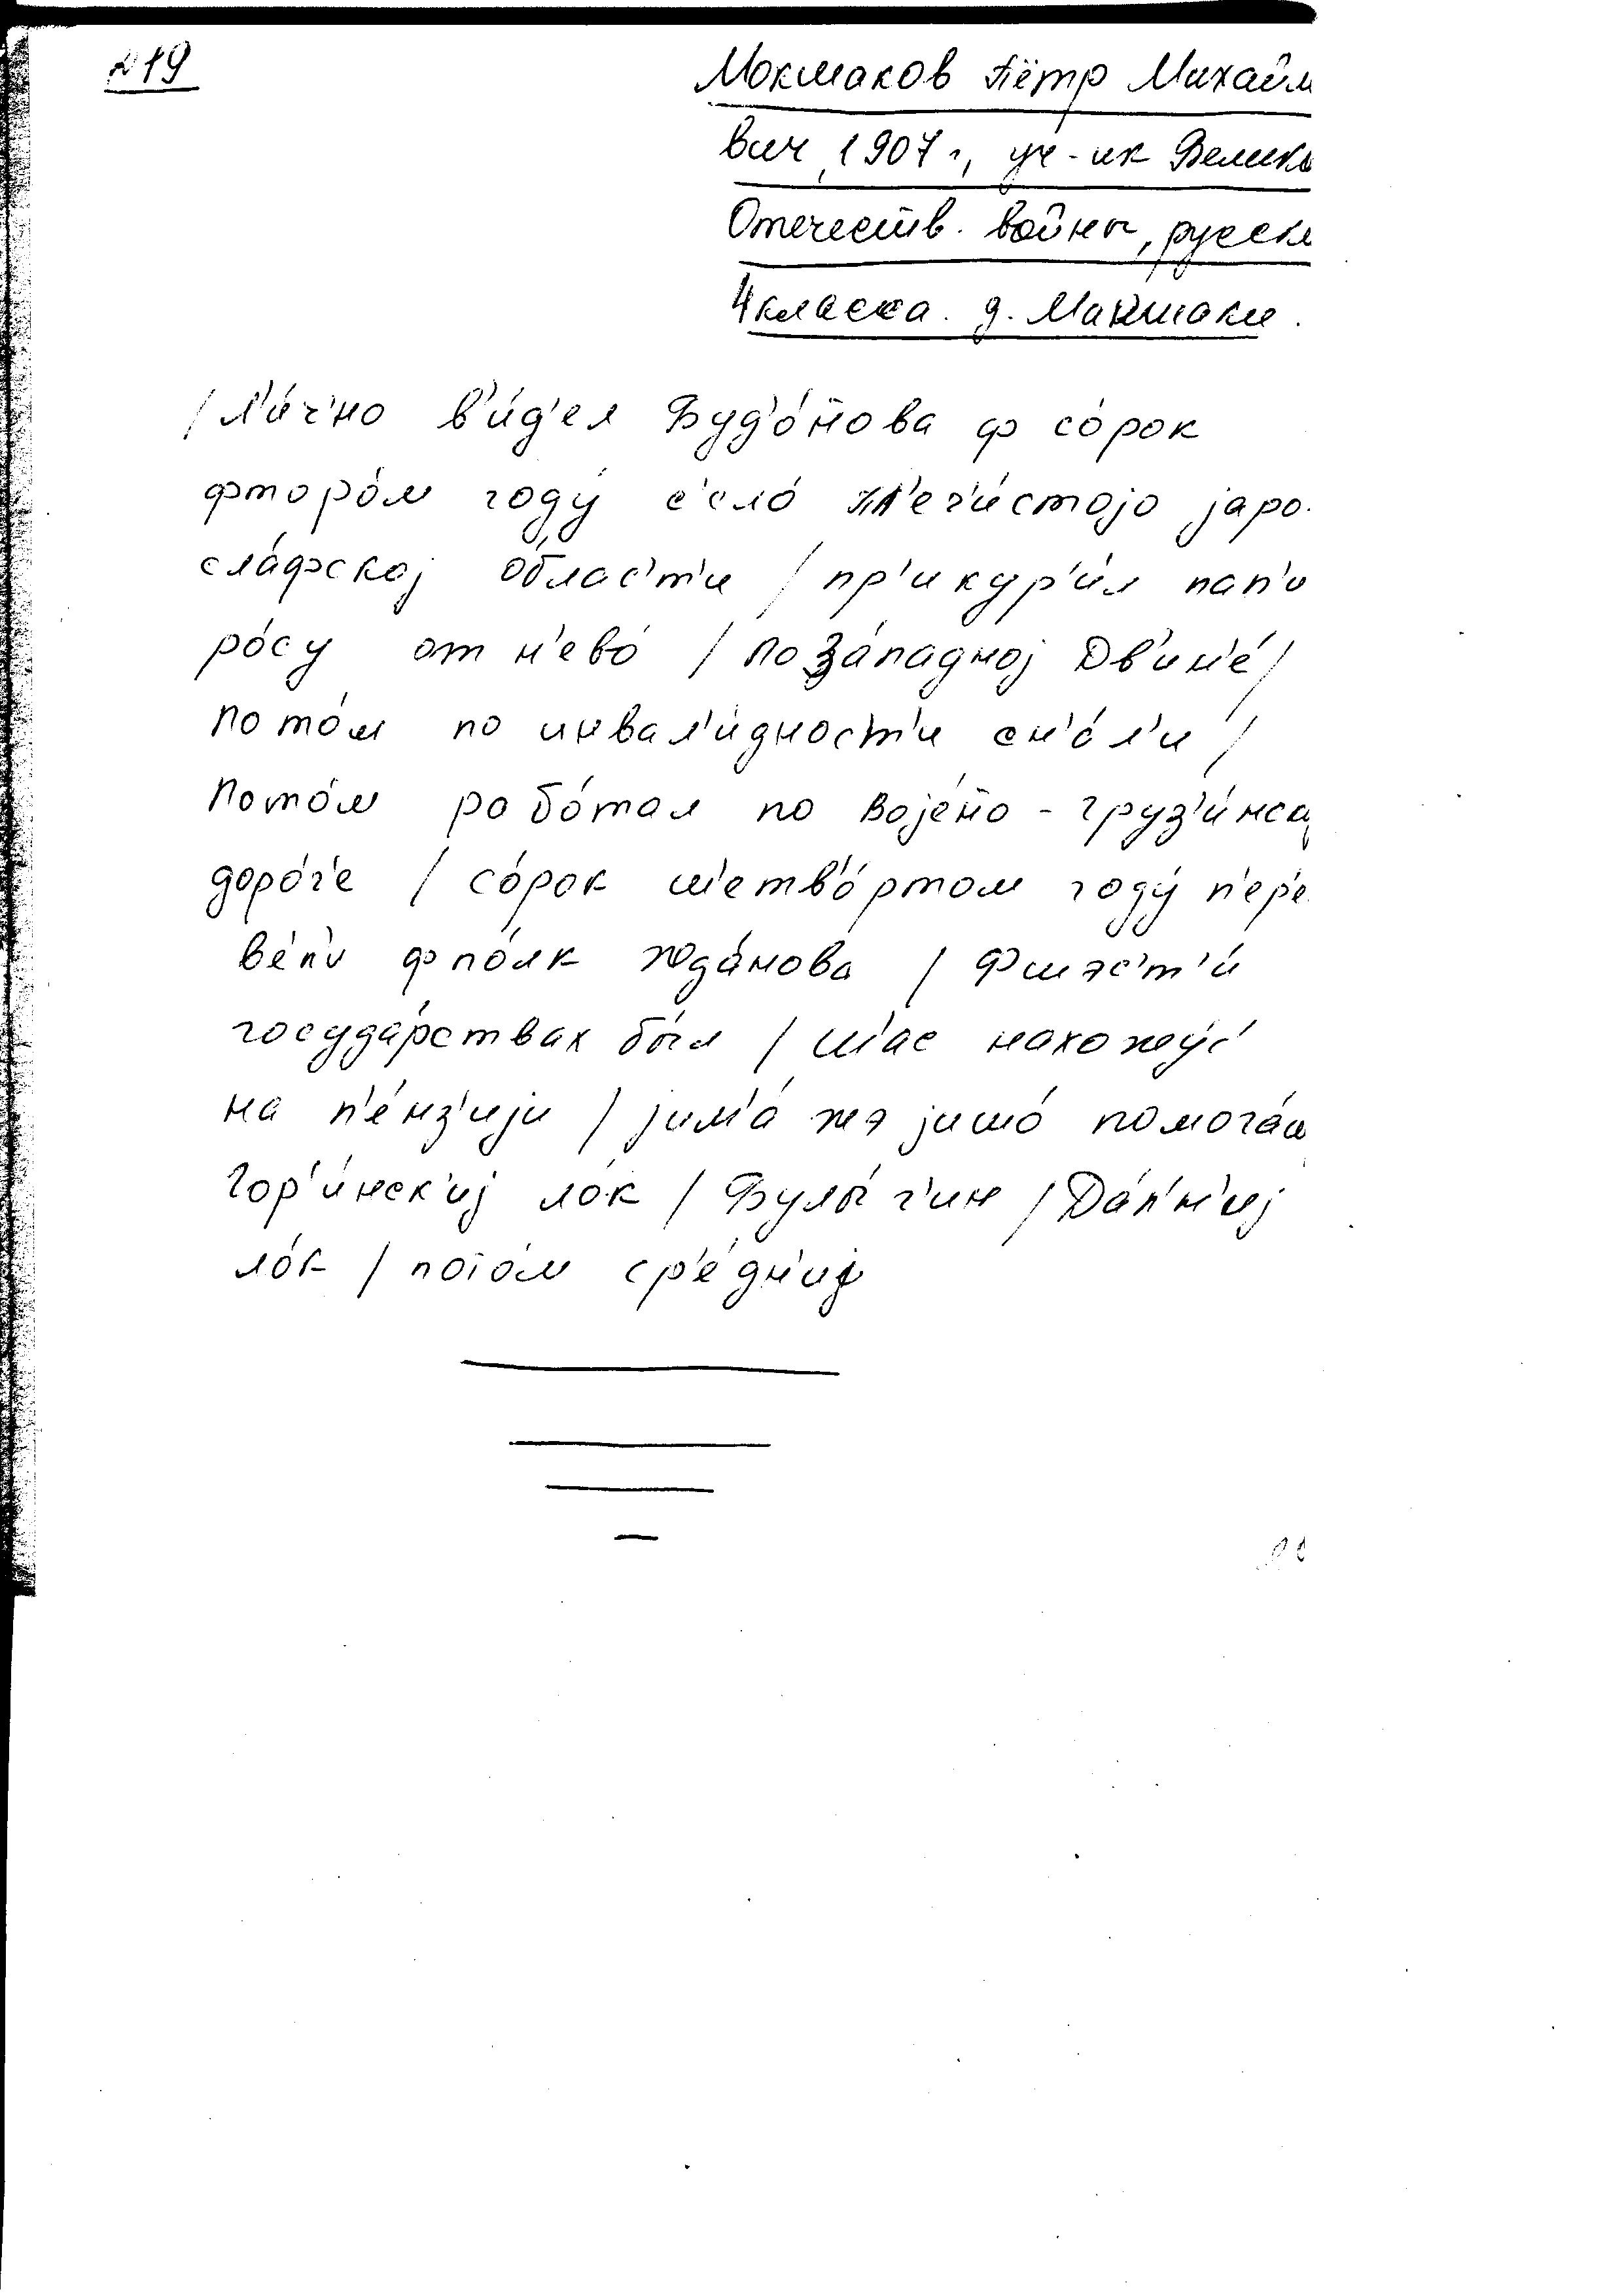 219
Мокшаков Пётр Михайл
вич, 1907 г., уч-ик Велико
Отечеств. войны, русск
4 класса. д. Макшаки.
/л'и́ч'но в'и́д'ел Буд'о́н̄ова ф со́рок
фторо́м году́ с'ело́ п'еч'и́стојо јаро-
сла́фској о́блас'т'и / пр'икур'и́л пап'и
ро́су от н'ево́ / по за́падној Дв'ин'е́ /
пото́м по инвал'и́дност'и сн'а́л'и /
пото́м робо́тал по војен̄о - груз'и́нск
доро́г'е / со́рок ш'етв'о́ртом году́ п'ер'е
вел'и ф полк жда́нова / фшэс'т'и́
госуда́рствах бы́л / ш'ас нахожу́с'
на п'е́нз'ији / јим'а́ жэ јишо́ помога́ш
Гор'и́нск'иј ло́к / Булы́г'ин / Да́л'н'иј
ло́к / пото́м ср'е́дн'иј